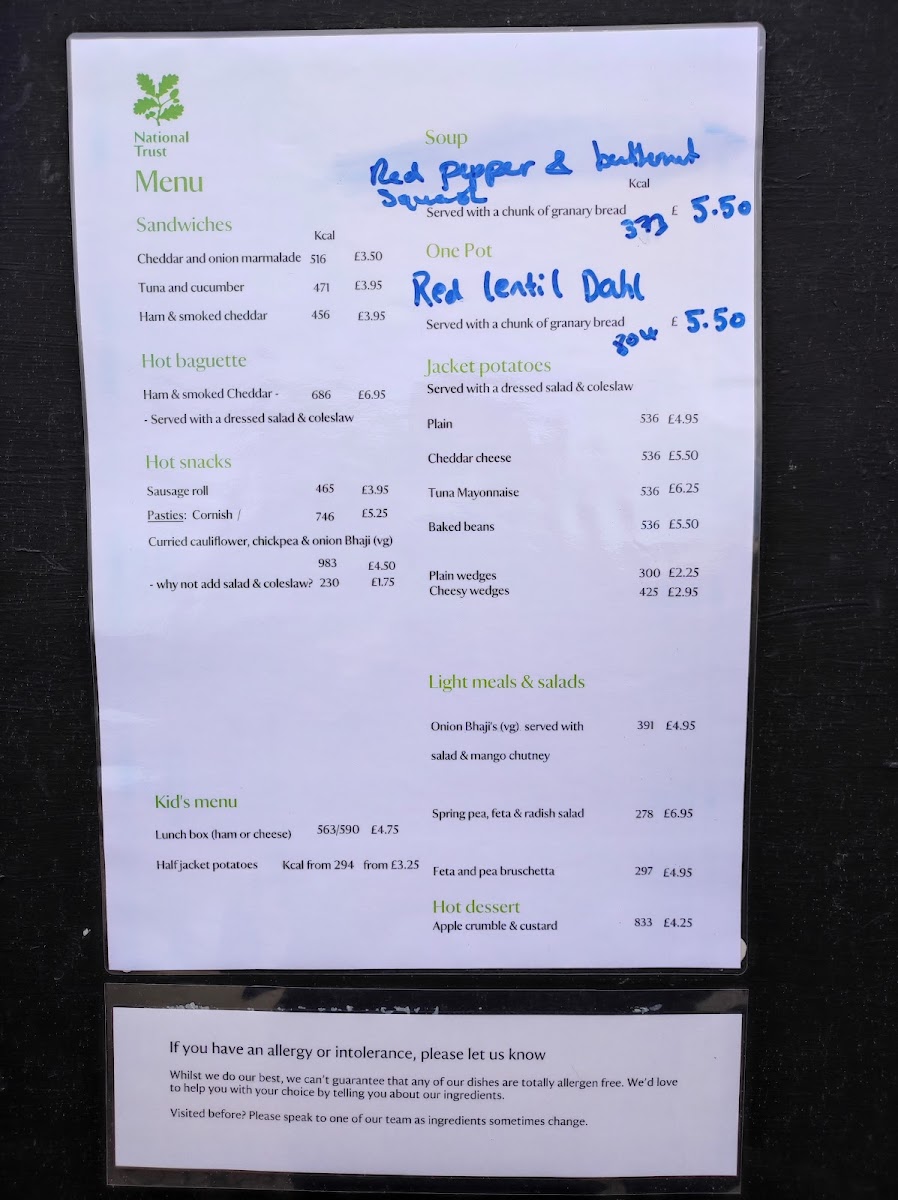 National
Trust
Menu
Sandwiches
Kcal
Cheddar and onion marmalade 516 £3.50
Tuna and cucumber 471 £3.95
Ham & smoked cheddar 456 £3.95
Hot baguette
Ham & smoked Cheddar - 686 £6.95
- Served with a dressed salad & coleslaw
Hot snacks
Sausage roll 465 £3.95
Pasties: Cornish / 746 £5.25
Curried cauliflower, chickpea & onion Bhaji (vg)
983 £4.50
- why not add salad & coleslaw? 230 £1.75
Kid's menu
Lunch box (ham or cheese) 563/590 £4.75
Half jacket potatoes Kcal from 294 from £3.25
Soup
Red pepper & butternut
Squash
Kcal
Served with a chunk of granary bread £ 5.50
373
One Pot
Red lentil Dahl
Served with a chunk of granary bread £ 5.50
804
Jacket potatoes
Served with a dressed salad & coleslaw
Plain 536 £4.95
Cheddar cheese 536 £5.50
Tuna Mayonnaise 536 £6.25
Baked beans 536 £5.50
Plain wedges 300 £2.25
Cheesy wedges 425 £2.95
Light meals & salads
Onion Bhaji's (vg) served with 391 £4.95
salad & mango chutney
Spring pea, feta & radish salad 278 £6.95
Feta and pea bruschetta 297 £4.95
Hot dessert
Apple crumble & custard 833 £4.25
If you have an allergy or intolerance, please let us know
Whilst we do our best, we can't guarantee that any of our dishes are totally allergen free. We'd love
to help you with your choice by telling you about our ingredients.
Visited before? Please speak to one of our team as ingredients sometimes change.